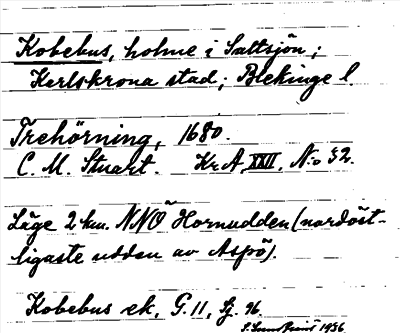 Kobebus, holme i Saltsjön;
Karlskrona stad; Blekinge l.
Trehörning, 1680.
C. M. Stuart. Kr A, XXII, No 32.
Läge 2 km. NNO Hornudden (nordöst-
ligaste udden av Aspö).
Kobebus ek, G. 11, Sj. 96
1936